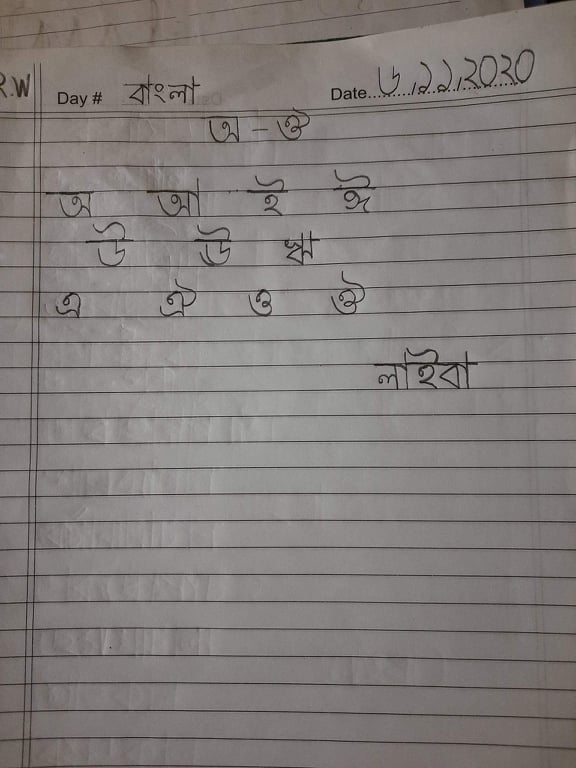 R.W Day # বাংলা Date ৬.১১.২০২০
অ - ঔ
অ আ ই ঈ
উ ঊ ঋ
এ ঐ ও ঔ
লাইবা